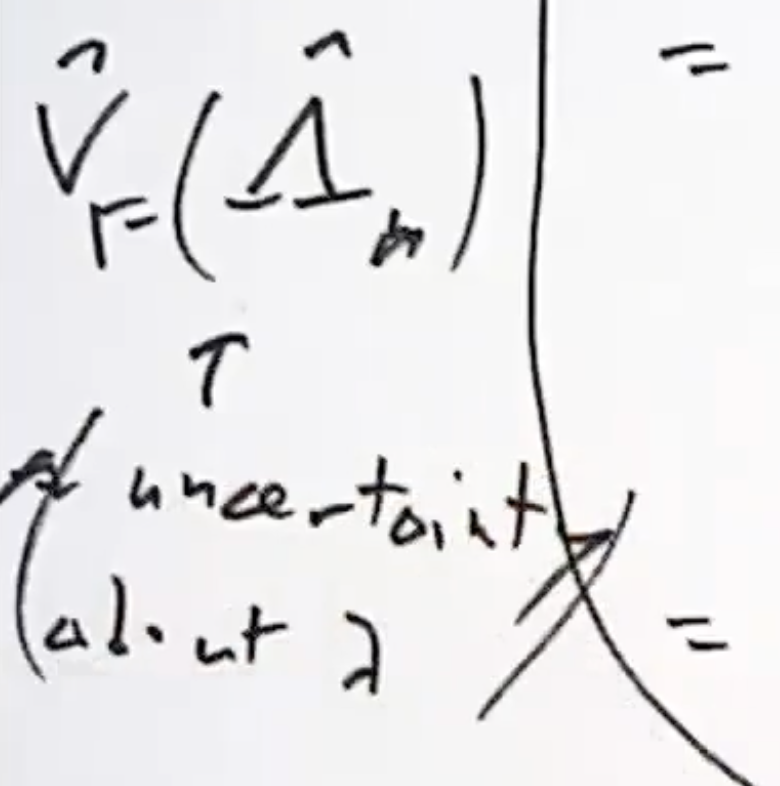 V̂_F(Λ̂_m) =
↑
(uncertainty
(about λ =